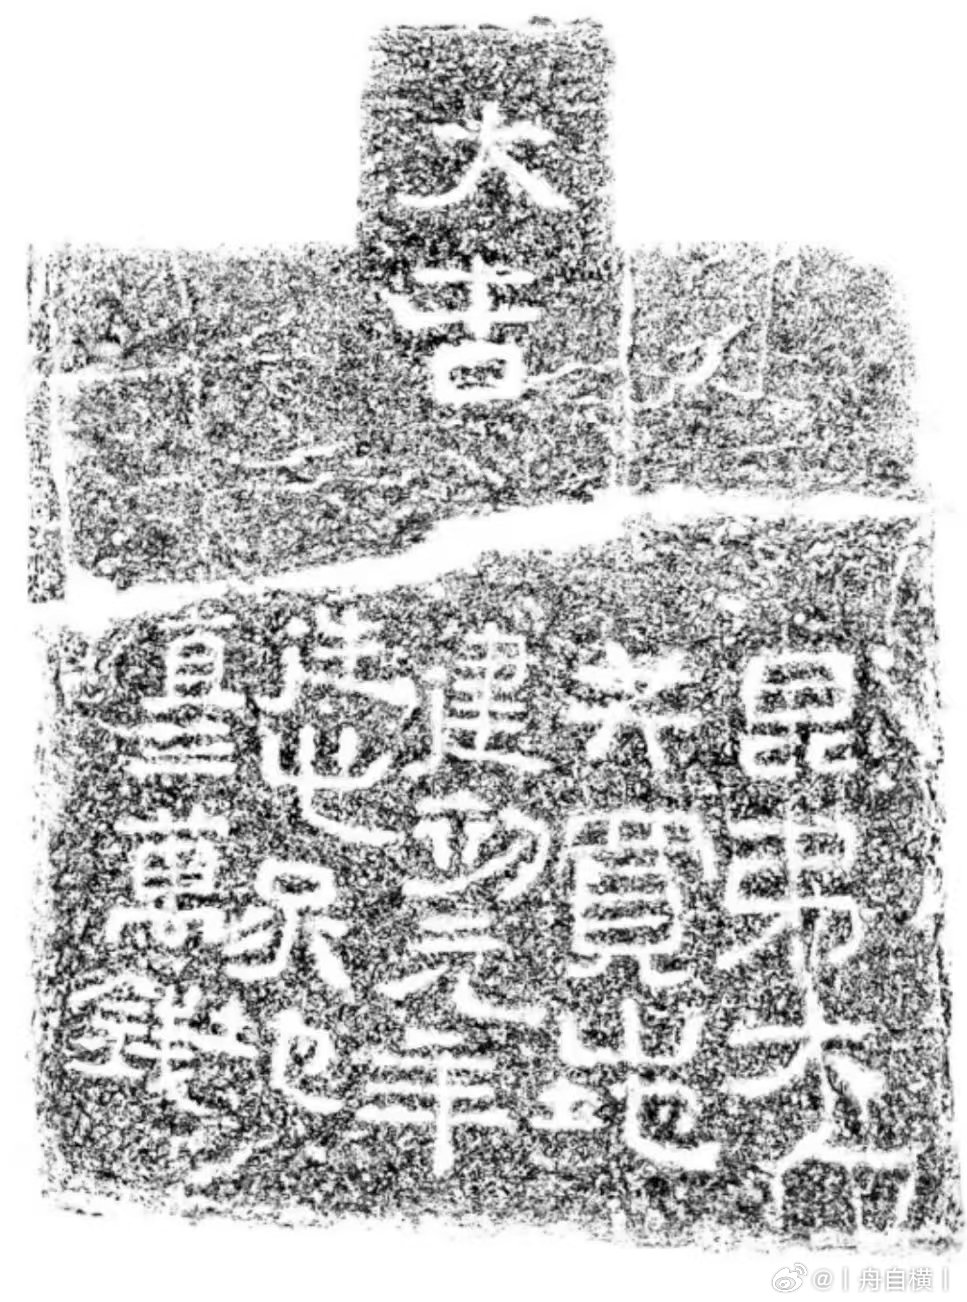 大吉
昆弟六人
共買山地
建初元年
造此冢地
直三萬錢
@丨舟自横丨